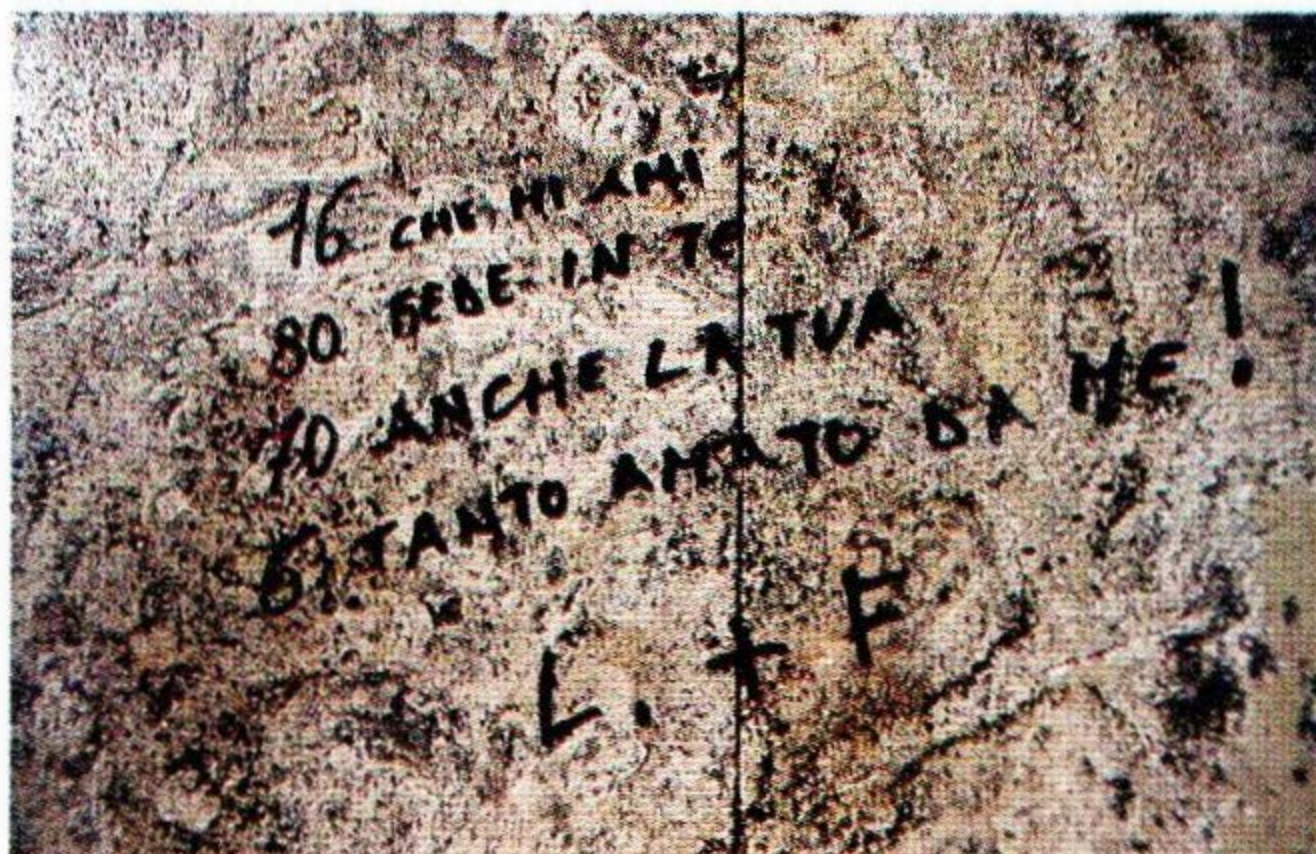 16 CHE MI AMI
80 FEDE IN TE
70 ANCHE LA TUA
6. TANTO AMATO DA ME!
L. + F